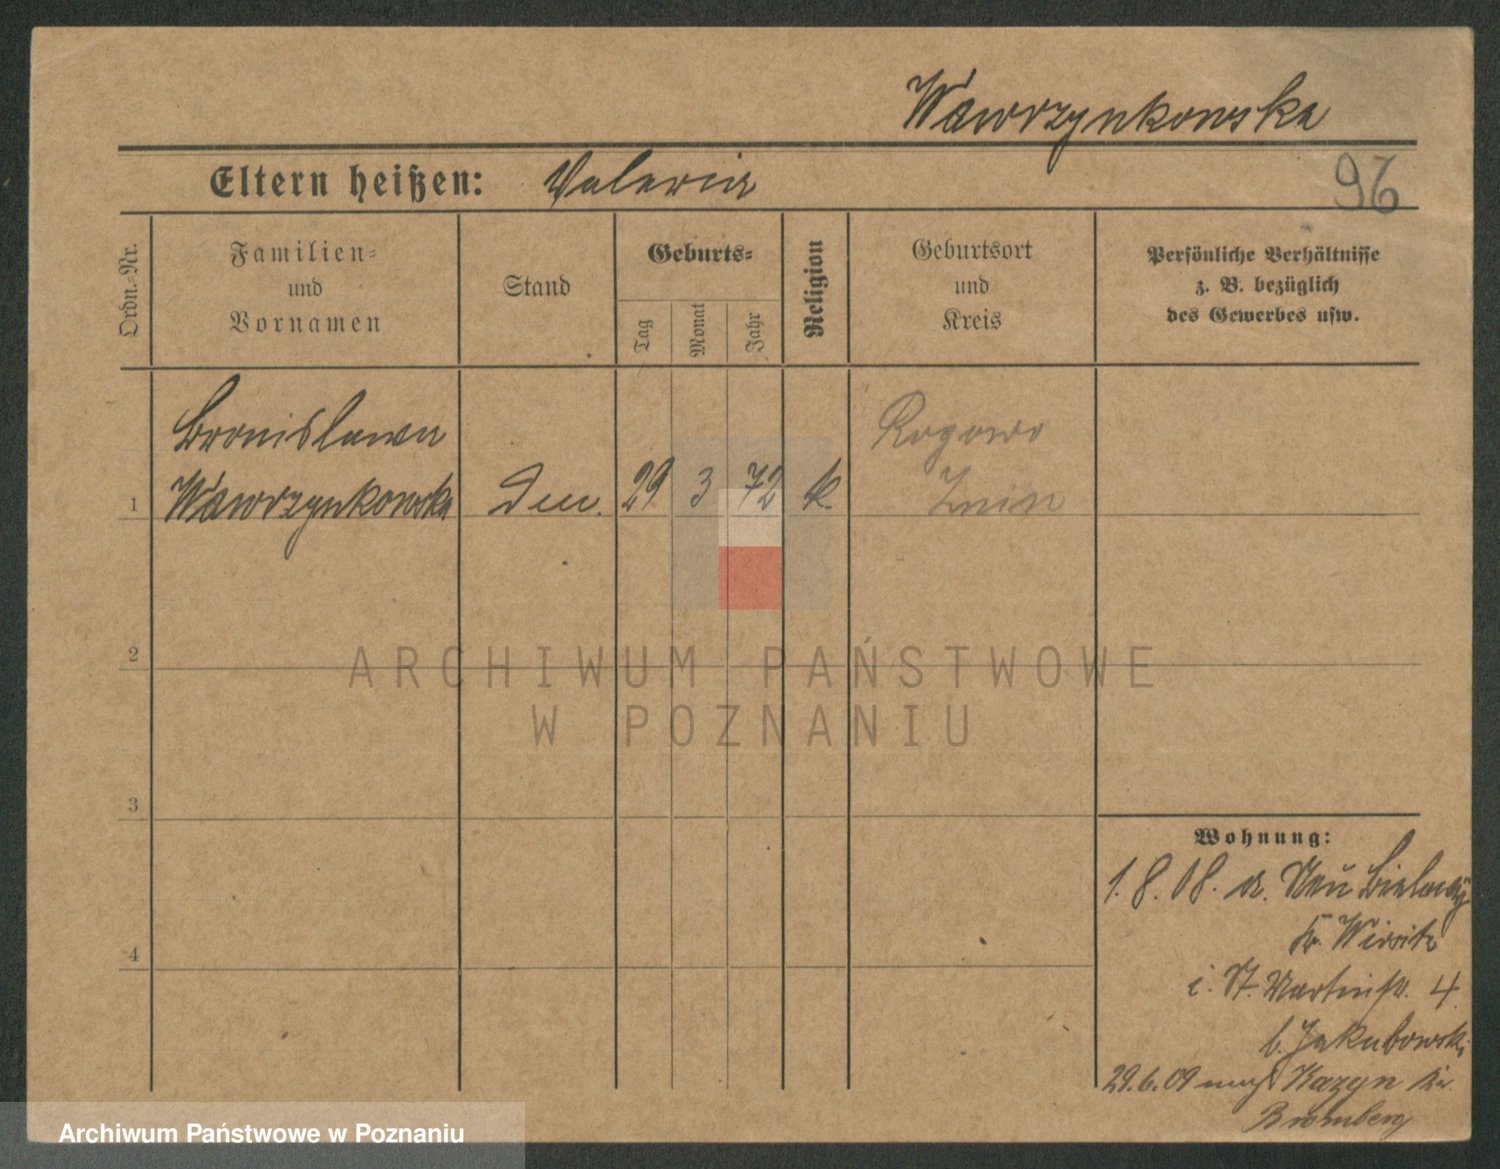 Wawrzynkowska
Eltern heißen: Valeria
96
Ordn.-Nr.
Familien-
und
Vornamen
Stand
Geburts-
Tag
Monat
Jahr
Religion
Geburtsort
und
Kreis
Persönliche Verhältnisse
z. B. bezüglich
des Gewerbes usw.
Bronislawa
1 Wawrzynkowska
29. 3 72 k.
Rogowo
Znin
2
3
4
Wohnung:
1.8.08. a. Neu
Kr. Wirsitz
i. St. Martinstr. 4
b. Jakubowski
29.6.09 nach Kr.
Bromberg
ARCHIWUM PAŃSTWOWE
W POZNANIU
Archiwum Państwowe w Poznaniu